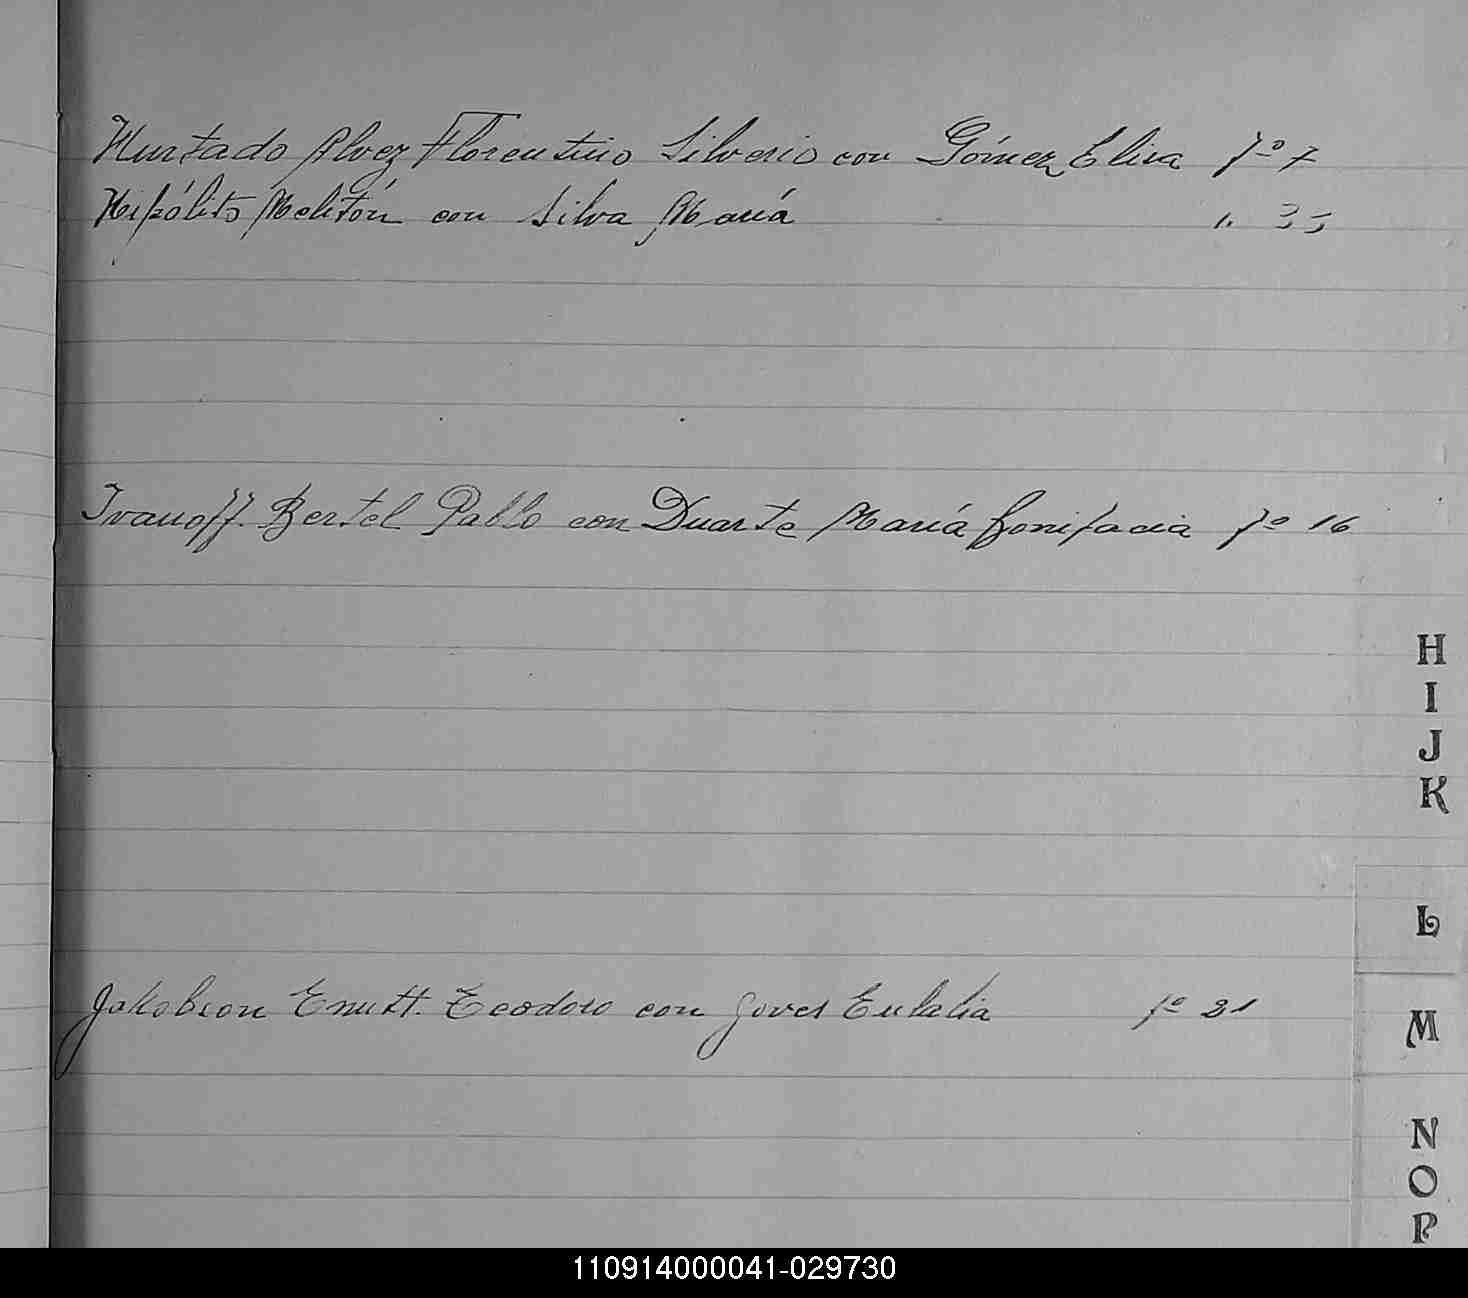 Hurtado Alvez Florentino Silverio con Gómez Elisa fº 7
Hipólito Melitón con Silva María " 35
Ivanoff. Bertel Pablo con Duarte María Bonifacia fº 16
Jakobson Enutt. Teodoro con Joves Eulalia fº 21
H
I
J
K
L
M
N
O
P
110914000041-029730